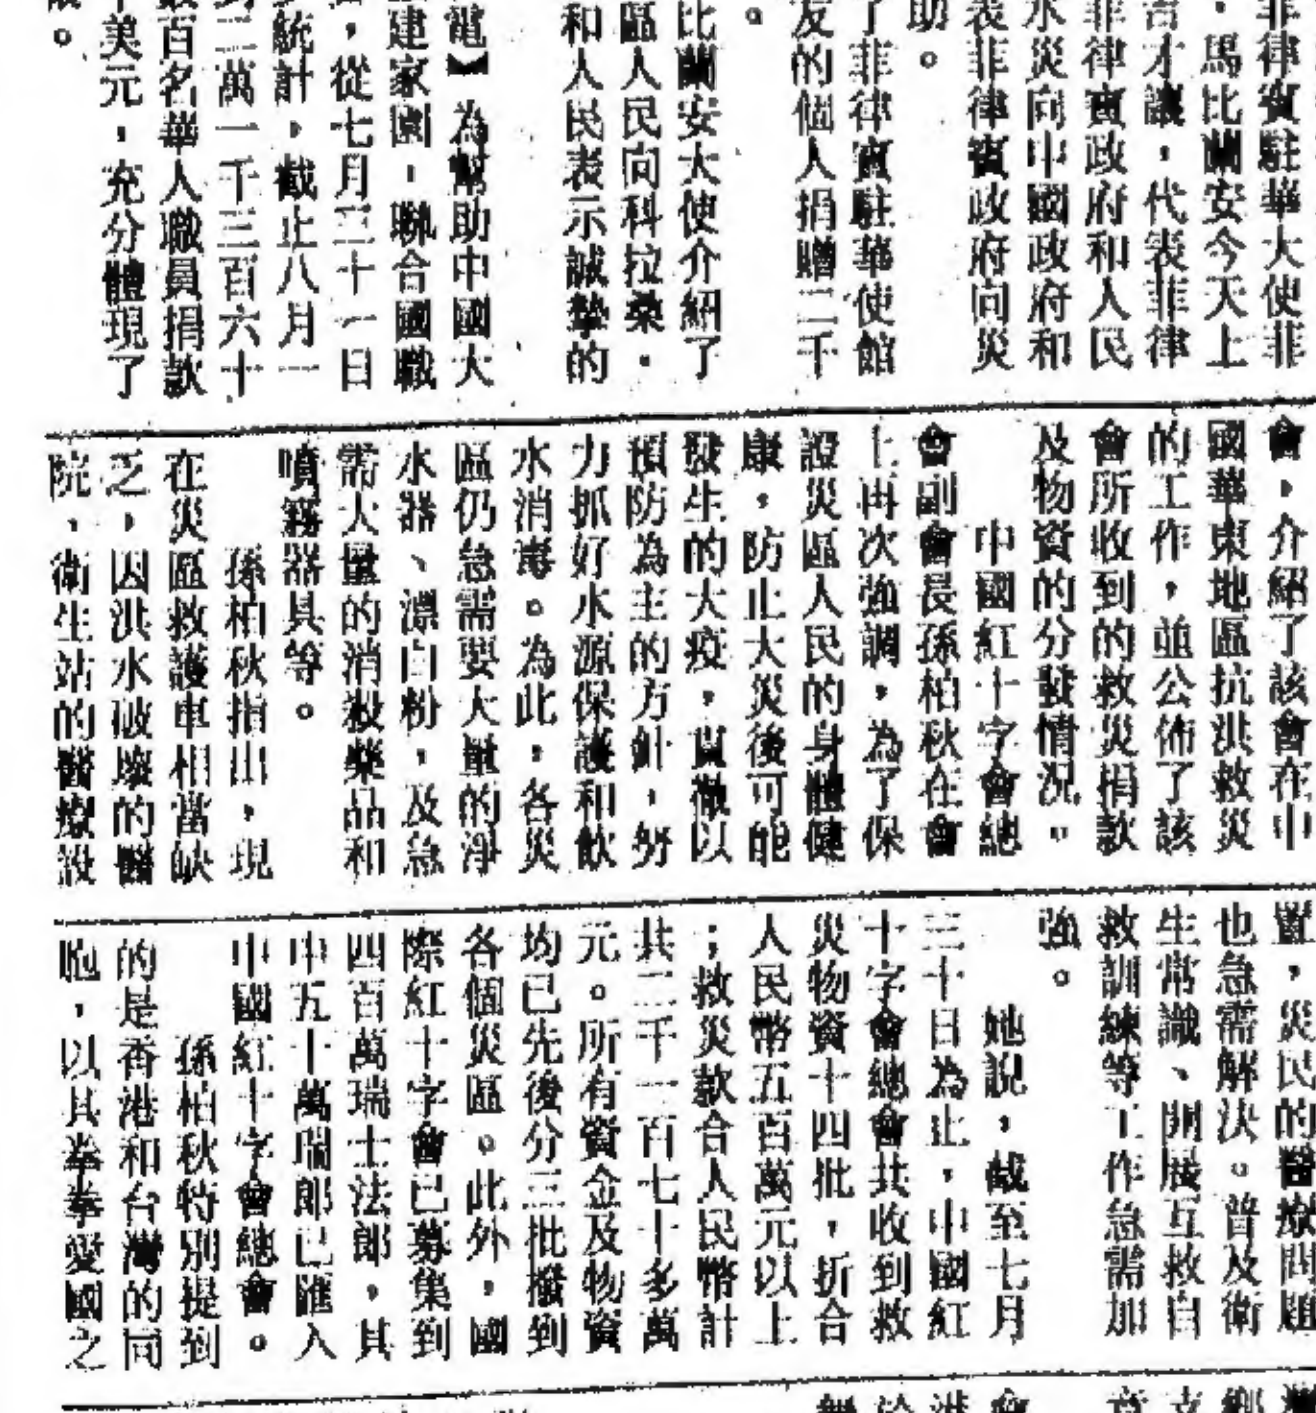 菲律賓駐華大使菲
，馬比蘭安今天上
言才議，代表菲律
菲律賓政府和人民
水災向中國政府和
表菲律賓政府向災
助。
了菲律賓駐華使館
友的個人捐贈二千
。
比蘭安大使介紹了
區人民向科拉桑．
和人民表示誠摯的
電】為幫助中國大
建家園，聯合國職
，從七月三十一日
統計，截止八月一
二萬一千三百六十
數百名華人職員捐款
美元，充分體現了
。
會，介紹了該會在中
國華東地區抗洪救災
的工作，並公佈了該
會所收到的救災捐款
及物資的分發情況。
中國紅十字會總
會副會長孫柏秋在會
上再次強調，為了保
證災區人民的身體健
康，防止大災後可能
發生的大疫，貫徹以
預防為主的方針，努
力抓好水源保護和飲
水消毒。為此，各災
區仍急需要大量的淨
水器、漂白粉，及急
需大量的消殺藥品和
噴霧器具等。
孫柏秋指出，現
在災區救護車相當缺
乏，因洪水破壞的醫
院、衛生站的醫療設
置，災民的醫療問題
也急需解決。普及衛
生常識、開展互救自
救訓練等工作急需加
強。
她說，截至七月
三十日為止，中國紅
十字會總會共收到救
災物資十四批，折合
人民幣五百萬元以上
；救災款合人民幣計
共二千一百七十多萬
元。所有資金及物資
均已先後分三批撥到
各個災區。此外，國
際紅十字會已募集到
四百萬瑞士法郎，其
中五十萬瑞郎已匯入
中國紅十字會總會。
孫柏秋特別提到
的是香港和台灣的同
胞，以其拳拳愛國之